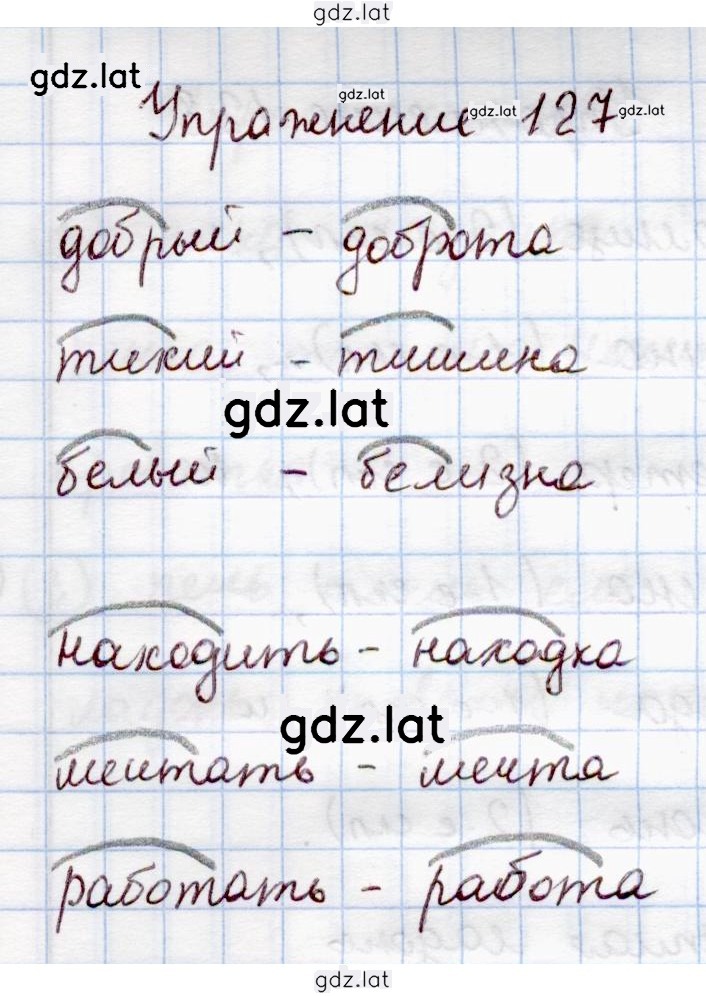 gdz.lat
gdz.lat
gdz.lat
Упражнение gdz.lat 127 gdz.lat
добрый - доброта
тихий - тишина
gdz.lat
белый - белизна
находить - находка
gdz.lat
мечтать - мечта
работать - работа
gdz.lat